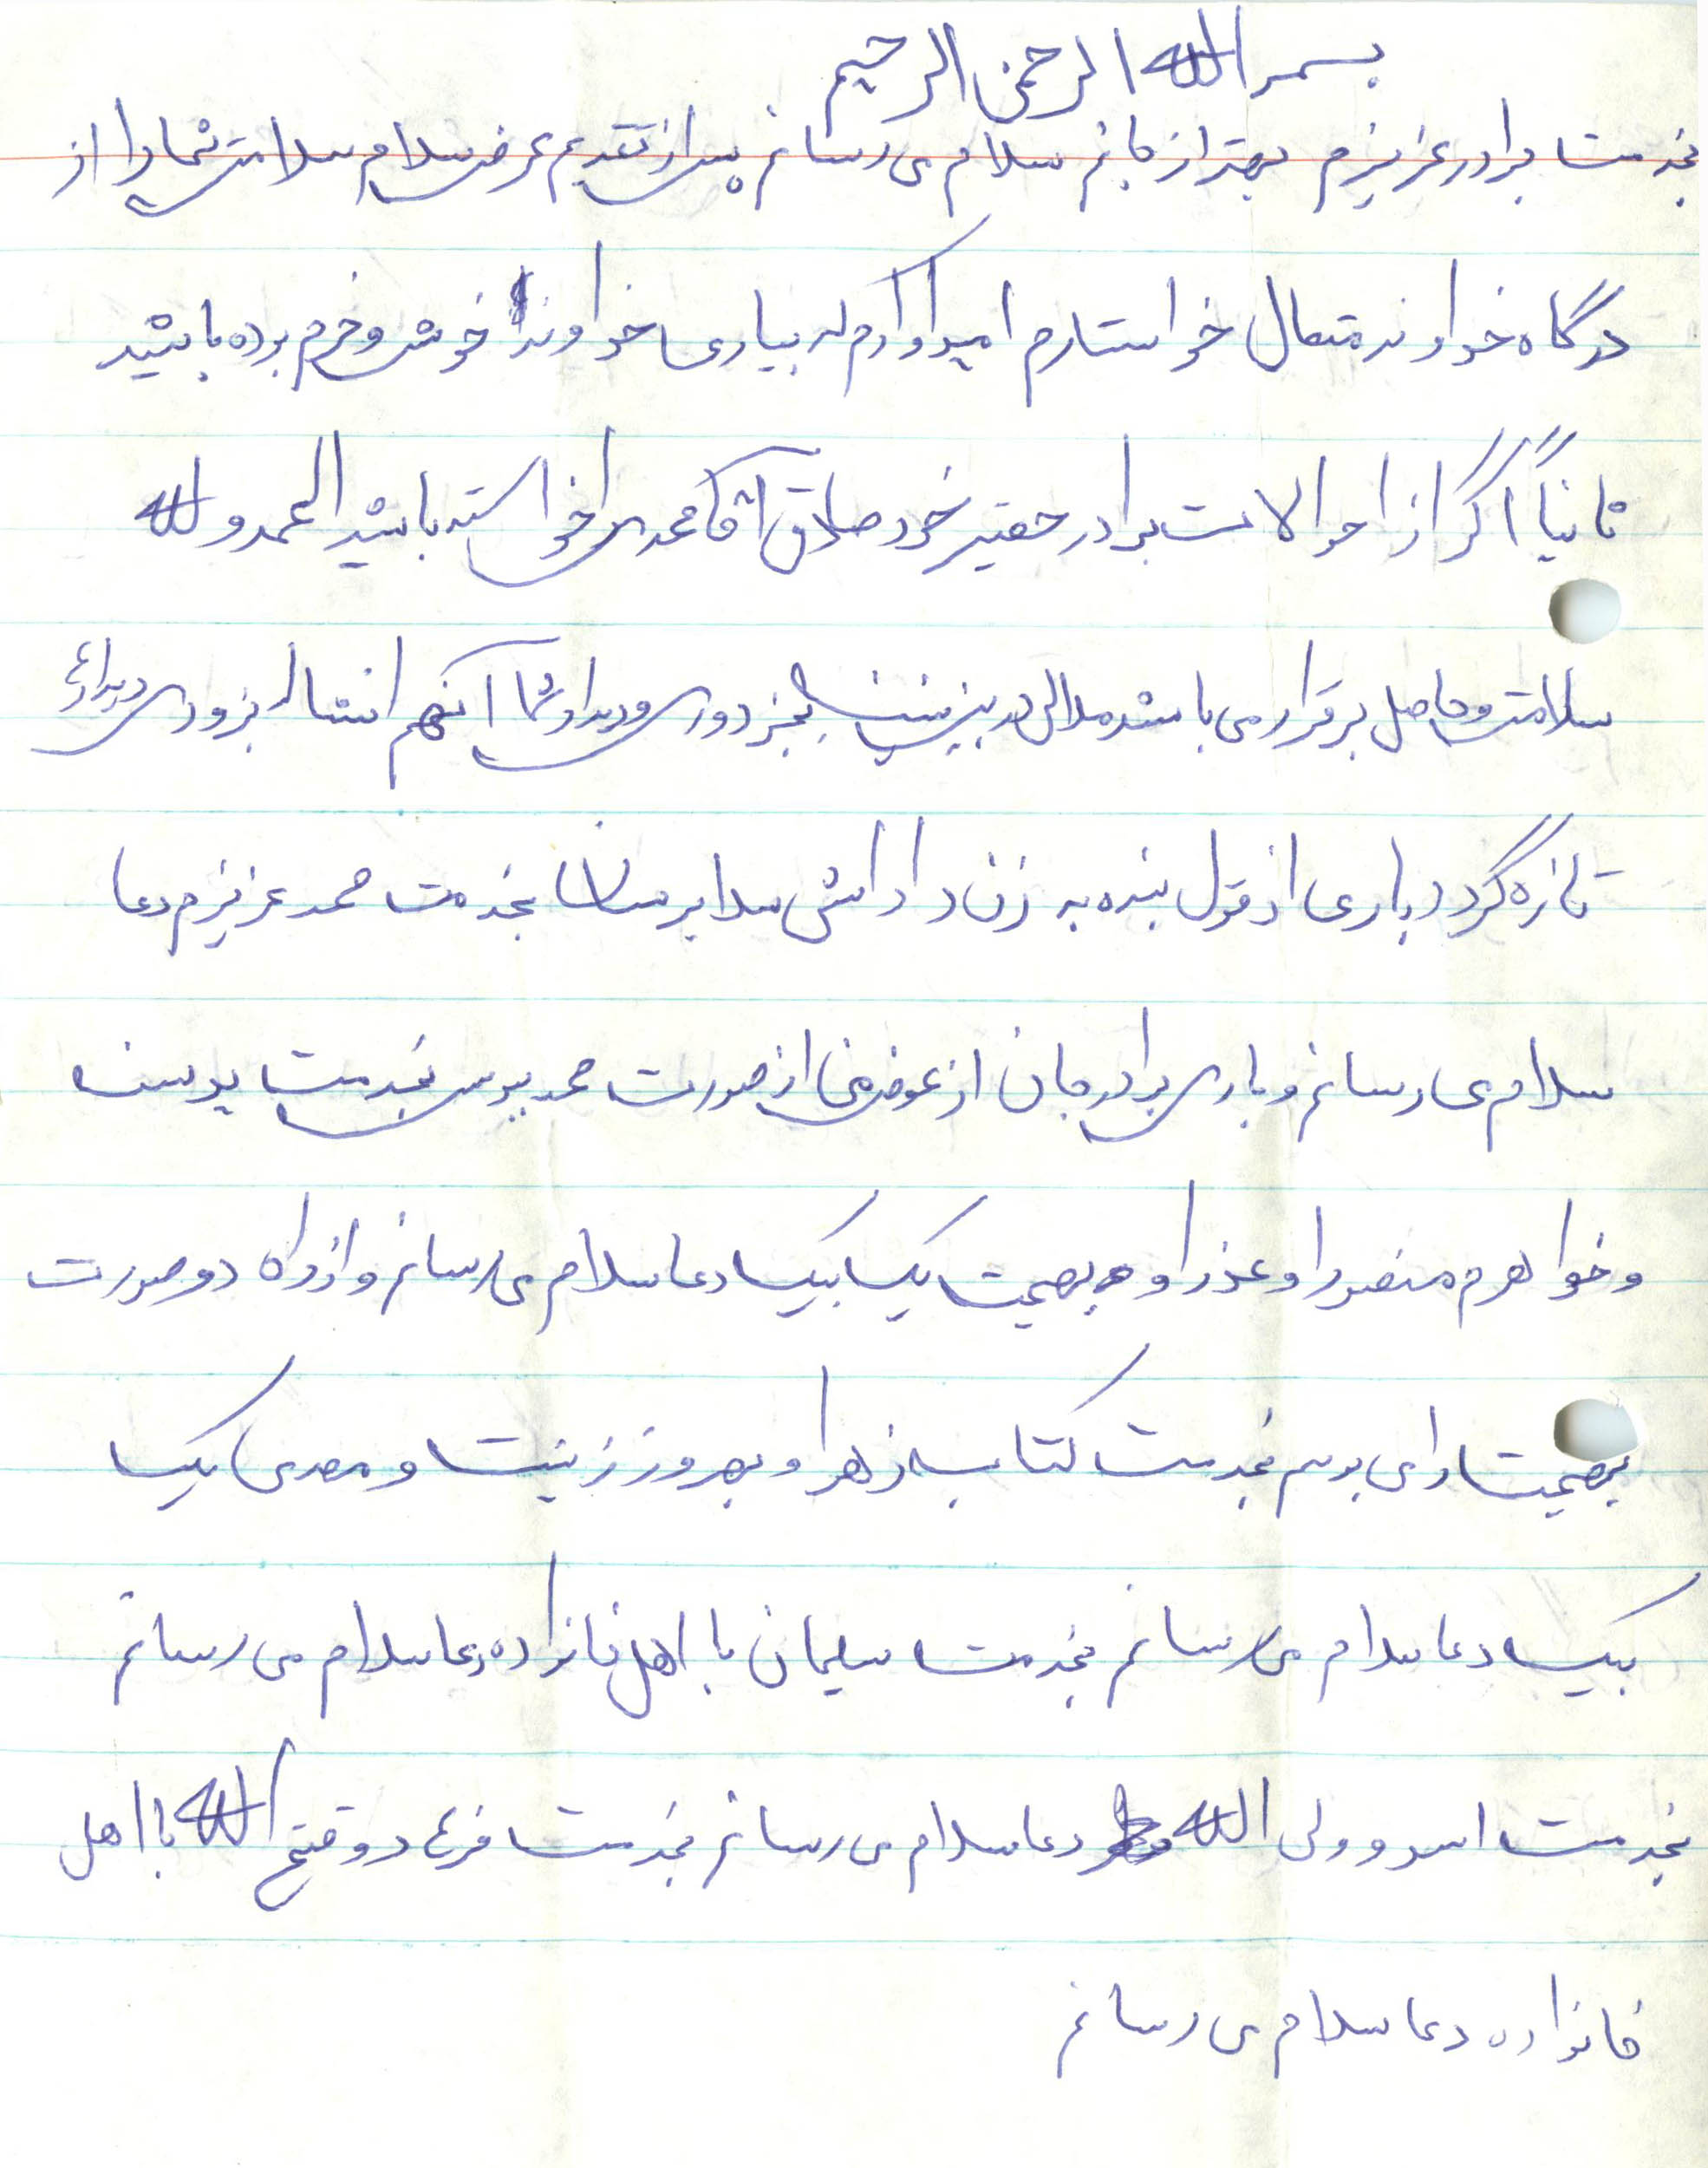 بسم الله الرحمن الرحیم
بخدمت برادر عزیزم بهتر از جانم سلام می رسانم پس از تقدیم عرض سلام سلامتی شما را از
درگاه خداوند متعال خواستارم امیداوارم که بیاری خداوند خوش و خرم بوده باشید
ثانیاً اگر از احوالات برادر حقیر خود صادق آقامحمدی را خواسته باشید الحمدو لله
سلامتی حاصل برقرار می باشد ملالی در بین نیست بجز دوری دیدار شما آنهم انشاا بزودی دیدارها
تازه گردد باری از قول بنده به زن داداش سلام برسان بخدمت محمد عزیزم دعا
سلام می رسانم و باری برادر جان از عوض من از صورت محمد ببوس بخدمت یوسف
و خواهرم منصورا و عذرا و بهجت یک بیک دعا سلام می رسانم و از راه دور صورت
بهجت را می بوسم بخدمت کتاب زهرا و بهروز زینت و مهدی یک
بیک دعا سلام می رسانم بخدمت سلیمان با اهل خانواده دعا سلام می رسانم
بخدمت اسد و ولی الله دعا سلام می رسانم بخدمت فرهاد و فتح الله با اهل
خانواده دعا سلام می رسانم